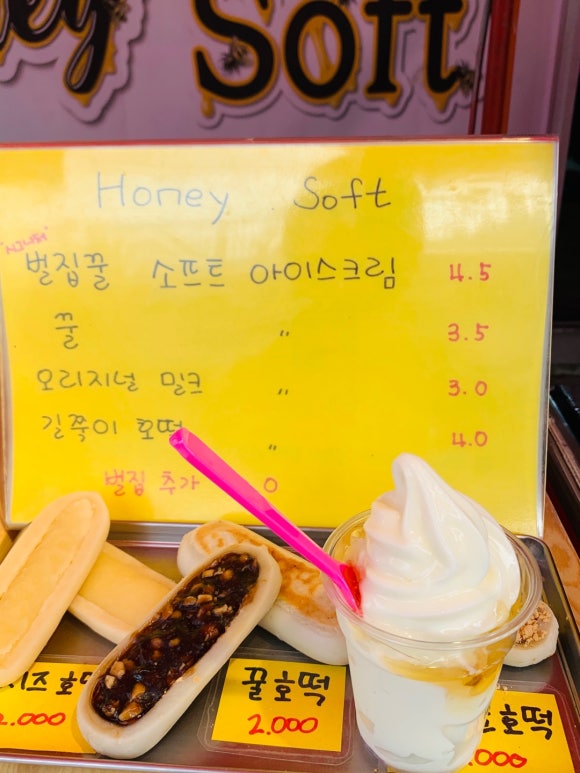 ey Soft
Honey Soft
벌집꿀 소프트 아이스크림 4.5
꿀 〃 3.5
오리지널 밀크 〃 3.0
길쭉이 호떡 〃 4.0
벌집 추가 0
즈호떡
2.000
꿀호떡
2.000
호떡
.000